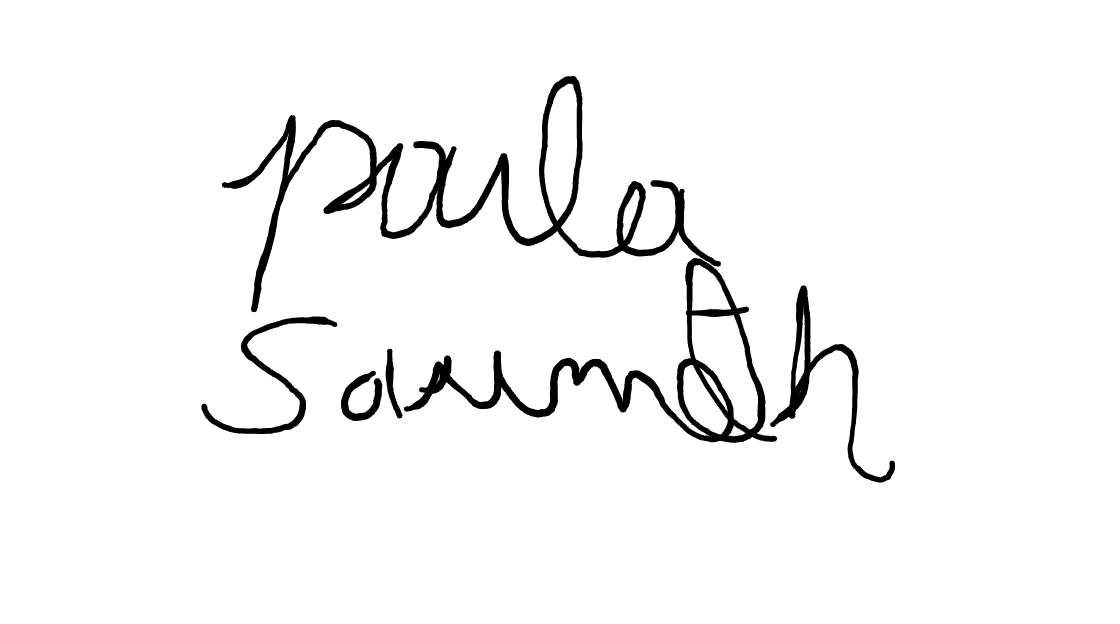 Paula
Saumeth